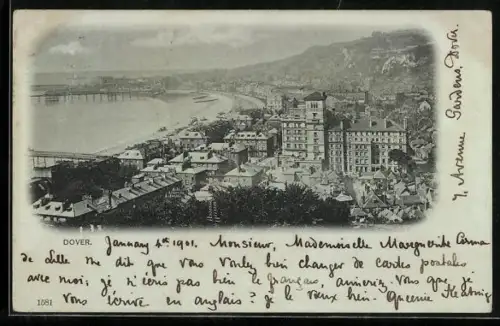 DOVER.
January 4th 1901. Monsieur, Mademoiselle Marguerite
de me dit que vous voulez bien changer de cartes postales
avec moi; je n'écris pas bien le français, aimeriez vous que je
vous écrive en anglais? je le veux bien. Queenie
1081
7, Avenue Gardens, Dover.